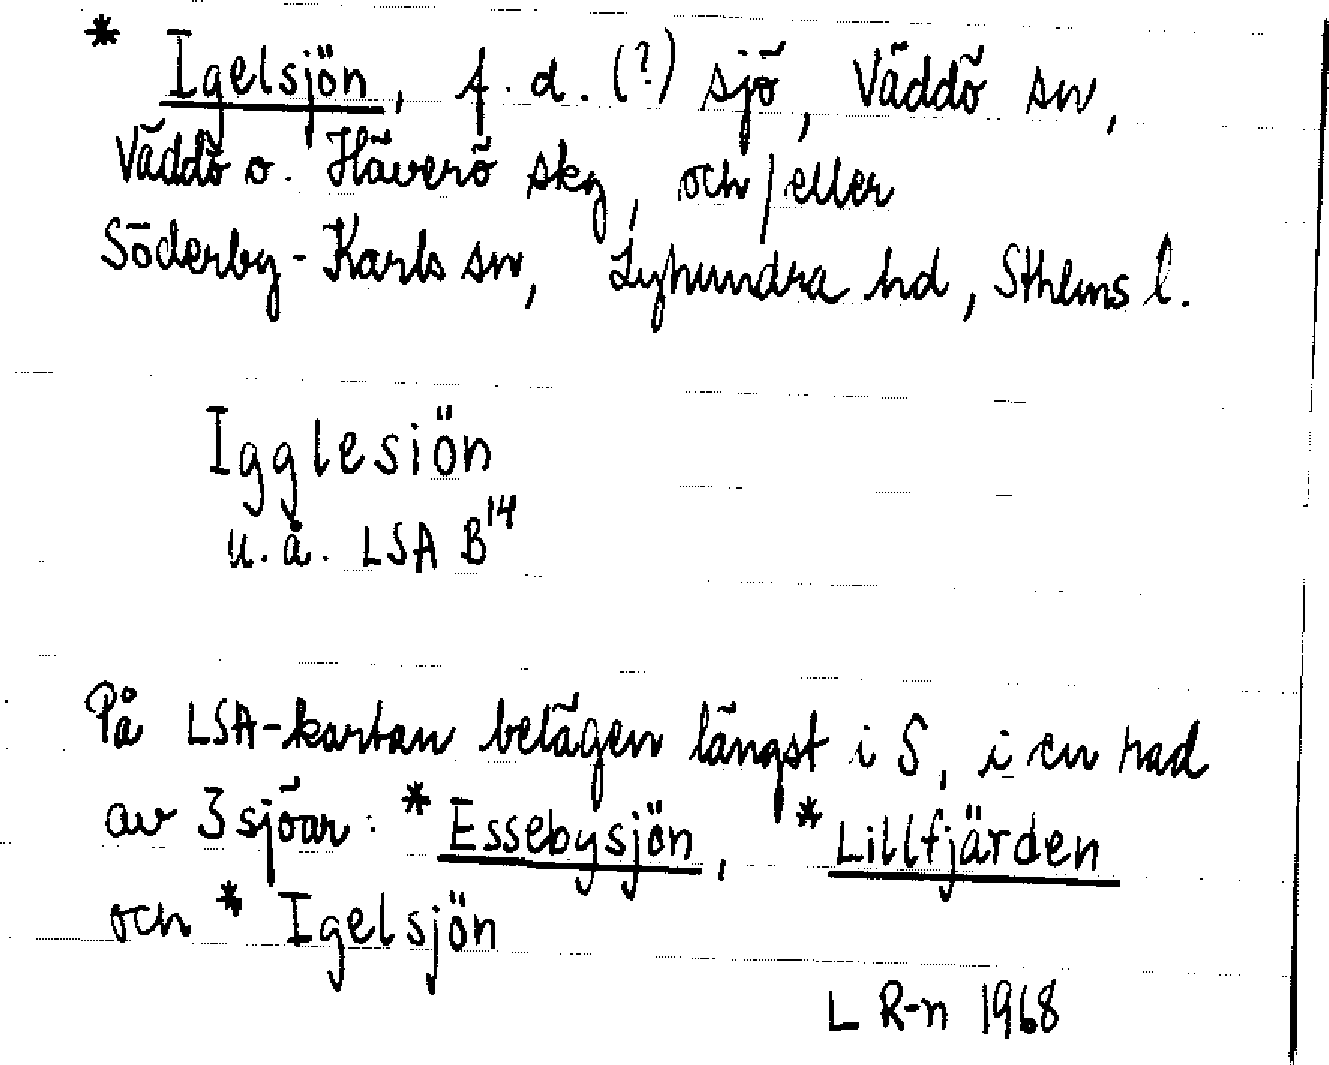 * Igelsjön, f.d. (?) sjö, Väddö sn,
Väddö o. Häverö skg, och/eller
Söderby-Karls sn, Lyhundra hd, Sthlms l.
Igglesiön
u.å. LSA B¹⁴
På LSA-kartan belägen längst i S, i en rad
av 3 sjöar: *Essebysjön, *Lillfjärden
och *Igelsjön
L R-n 1968